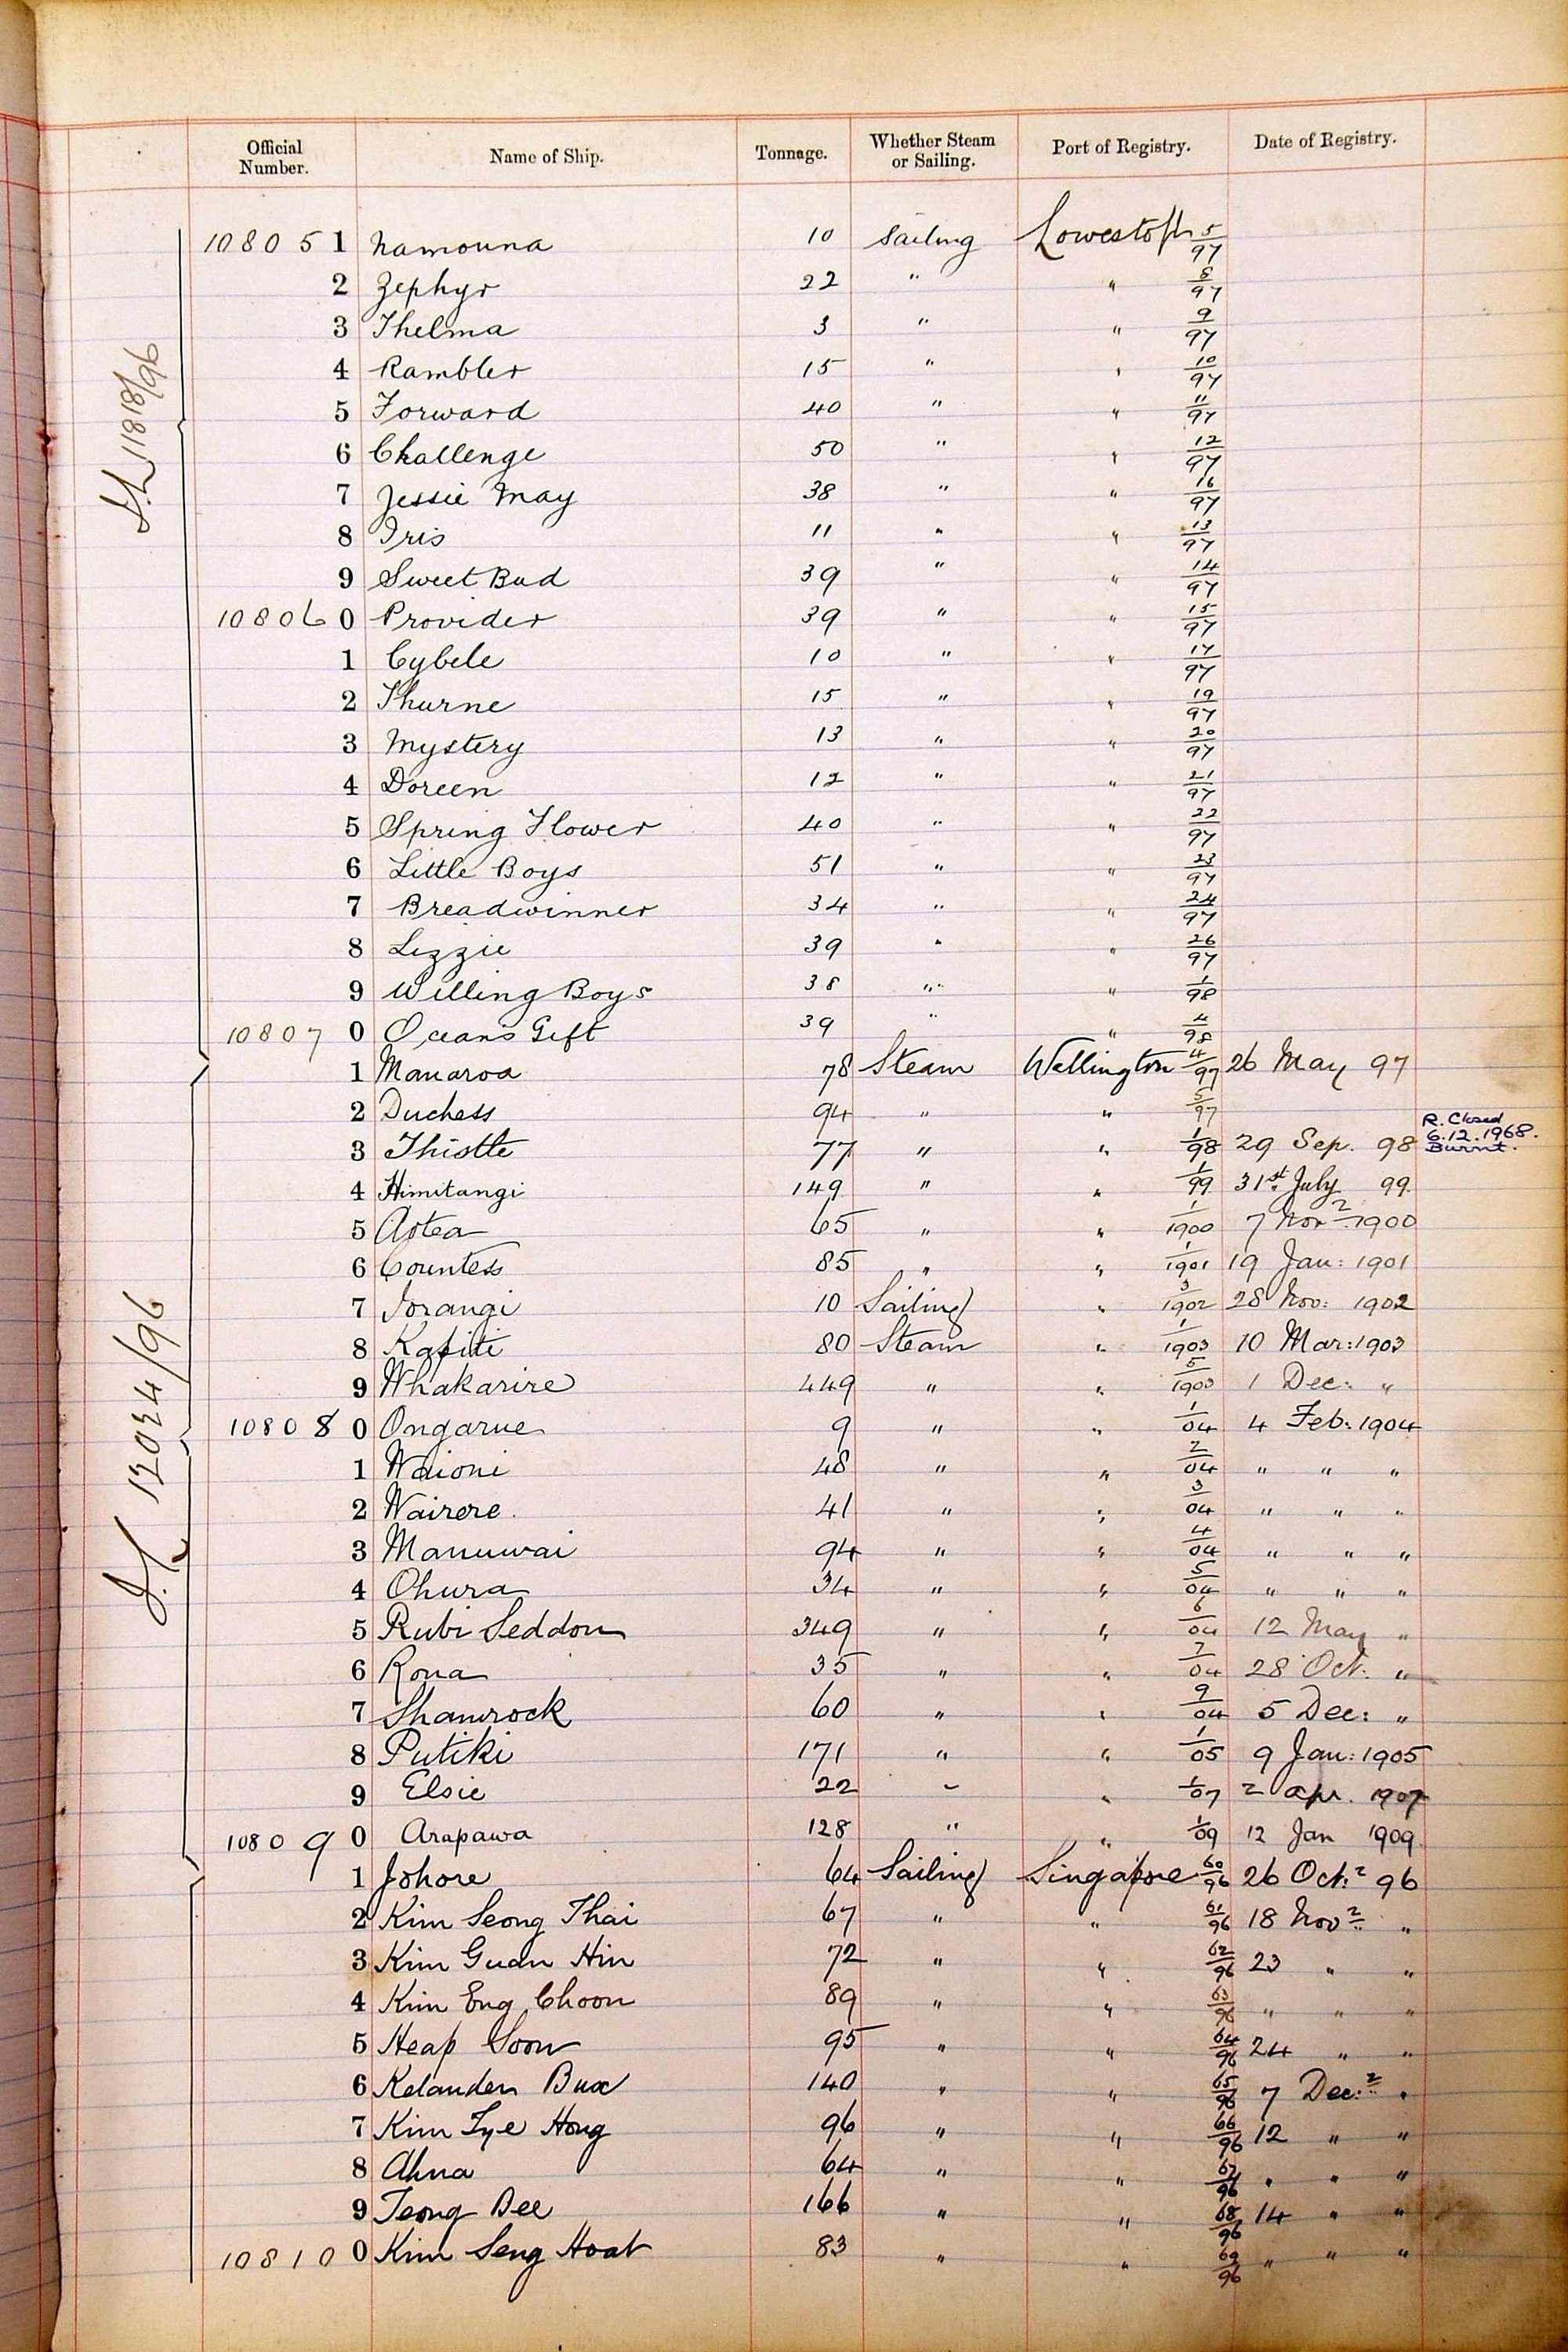 Official Number. Name of Ship. Tonnage. Whether Steam or Sailing. Port of Registry. Date of Registry.
108051 Namouna 10 Sailing Lowestoft 5/97
2 Zephyr 22 " " 8/97
3 Thelma 3 " " 9/97
4 Rambler 15 " " 10/97
5 Forward 40 " " 11/97
6 Challenge 50 " " 12/97
7 Jessie May 38 " " 16/97
8 Iris 11 " " 13/97
9 Sweet Bud 39 " " 14/97
108060 Provider 39 " " 15/97
1 Cybele 10 " " 17/97
2 Thurne 15 " " 19/97
3 Mystery 13 " " 20/97
4 Doreen 12 " " 21/97
5 Spring Flower 40 " " 22/97
6 Little Boys 51 " " 23/97
7 Breadwinner 34 " " 24/97
8 Lizzie 39 " " 26/97
9 Willing Boys 38 " " 1/98
108070 Ocean's Gift 39 " " 4/98
11818/96
1 Manaroa 78 Steam Wellington 4/97 26 May 97
2 Duchess 94 " " 5/97
3 Thistle 77 " " 1/98 29 Sep. 98 R. Closed 6.12.1968. Burnt.
4 Himitangi 149 " " 1/99 31st July 99
5 Aotea 65 " " 1/1900 7 Novr 1900
6 Countess 85 " " 1/1901 19 Jan: 1901
7 Torangi 10 Sailing " 3/1902 28 Nov: 1902
8 Kapiti 80 Steam " 1/1903 10 Mar: 1903
9 Whakarire 449 " " 5/1903 1 Dec: "
108080 Ongarue 9 " " 1/04 4 Feb: 1904
1 Waioni 48 " " 2/04 " " "
2 Wairere 41 " " 3/04 " " "
3 Manuwai 94 " " 4/04 " " "
4 Ohura 34 " " 5/04 " " "
5 Rubi Seddon 349 " " 6/04 12 May "
6 Rona 35 " " 7/04 28 Oct. "
7 Shamrock 60 " " 9/04 5 Dec: "
8 Putiki 171 " " 1/05 9 Jan: 1905
9 Elsie 22 " " 1/07 2 Apr. 1907
108090 Arapawa 128 " " 1/09 12 Jan 1909
12034/96
1 Johore 64 Sailing Singapore 60/96 26 Octr 96
2 Kim Seong Thai 67 " " 61/96 18 Novr "
3 Kim Guan Hin 72 " " 62/96 23 " "
4 Kim Eng Choon 89 " " 63/96 " " "
5 Heap Soon 95 " " 64/96 24 " "
6 Kelanden Bux 140 " " 65/96 7 Decr "
7 Kim Tye Hong 96 " " 66/96 12 " "
8 Ahna 64 " " 67/96 " " "
9 Teong Bee 166 " " 68/96 14 " "
108100 Kim Seng Hoat 83 " " 69/96 " " "